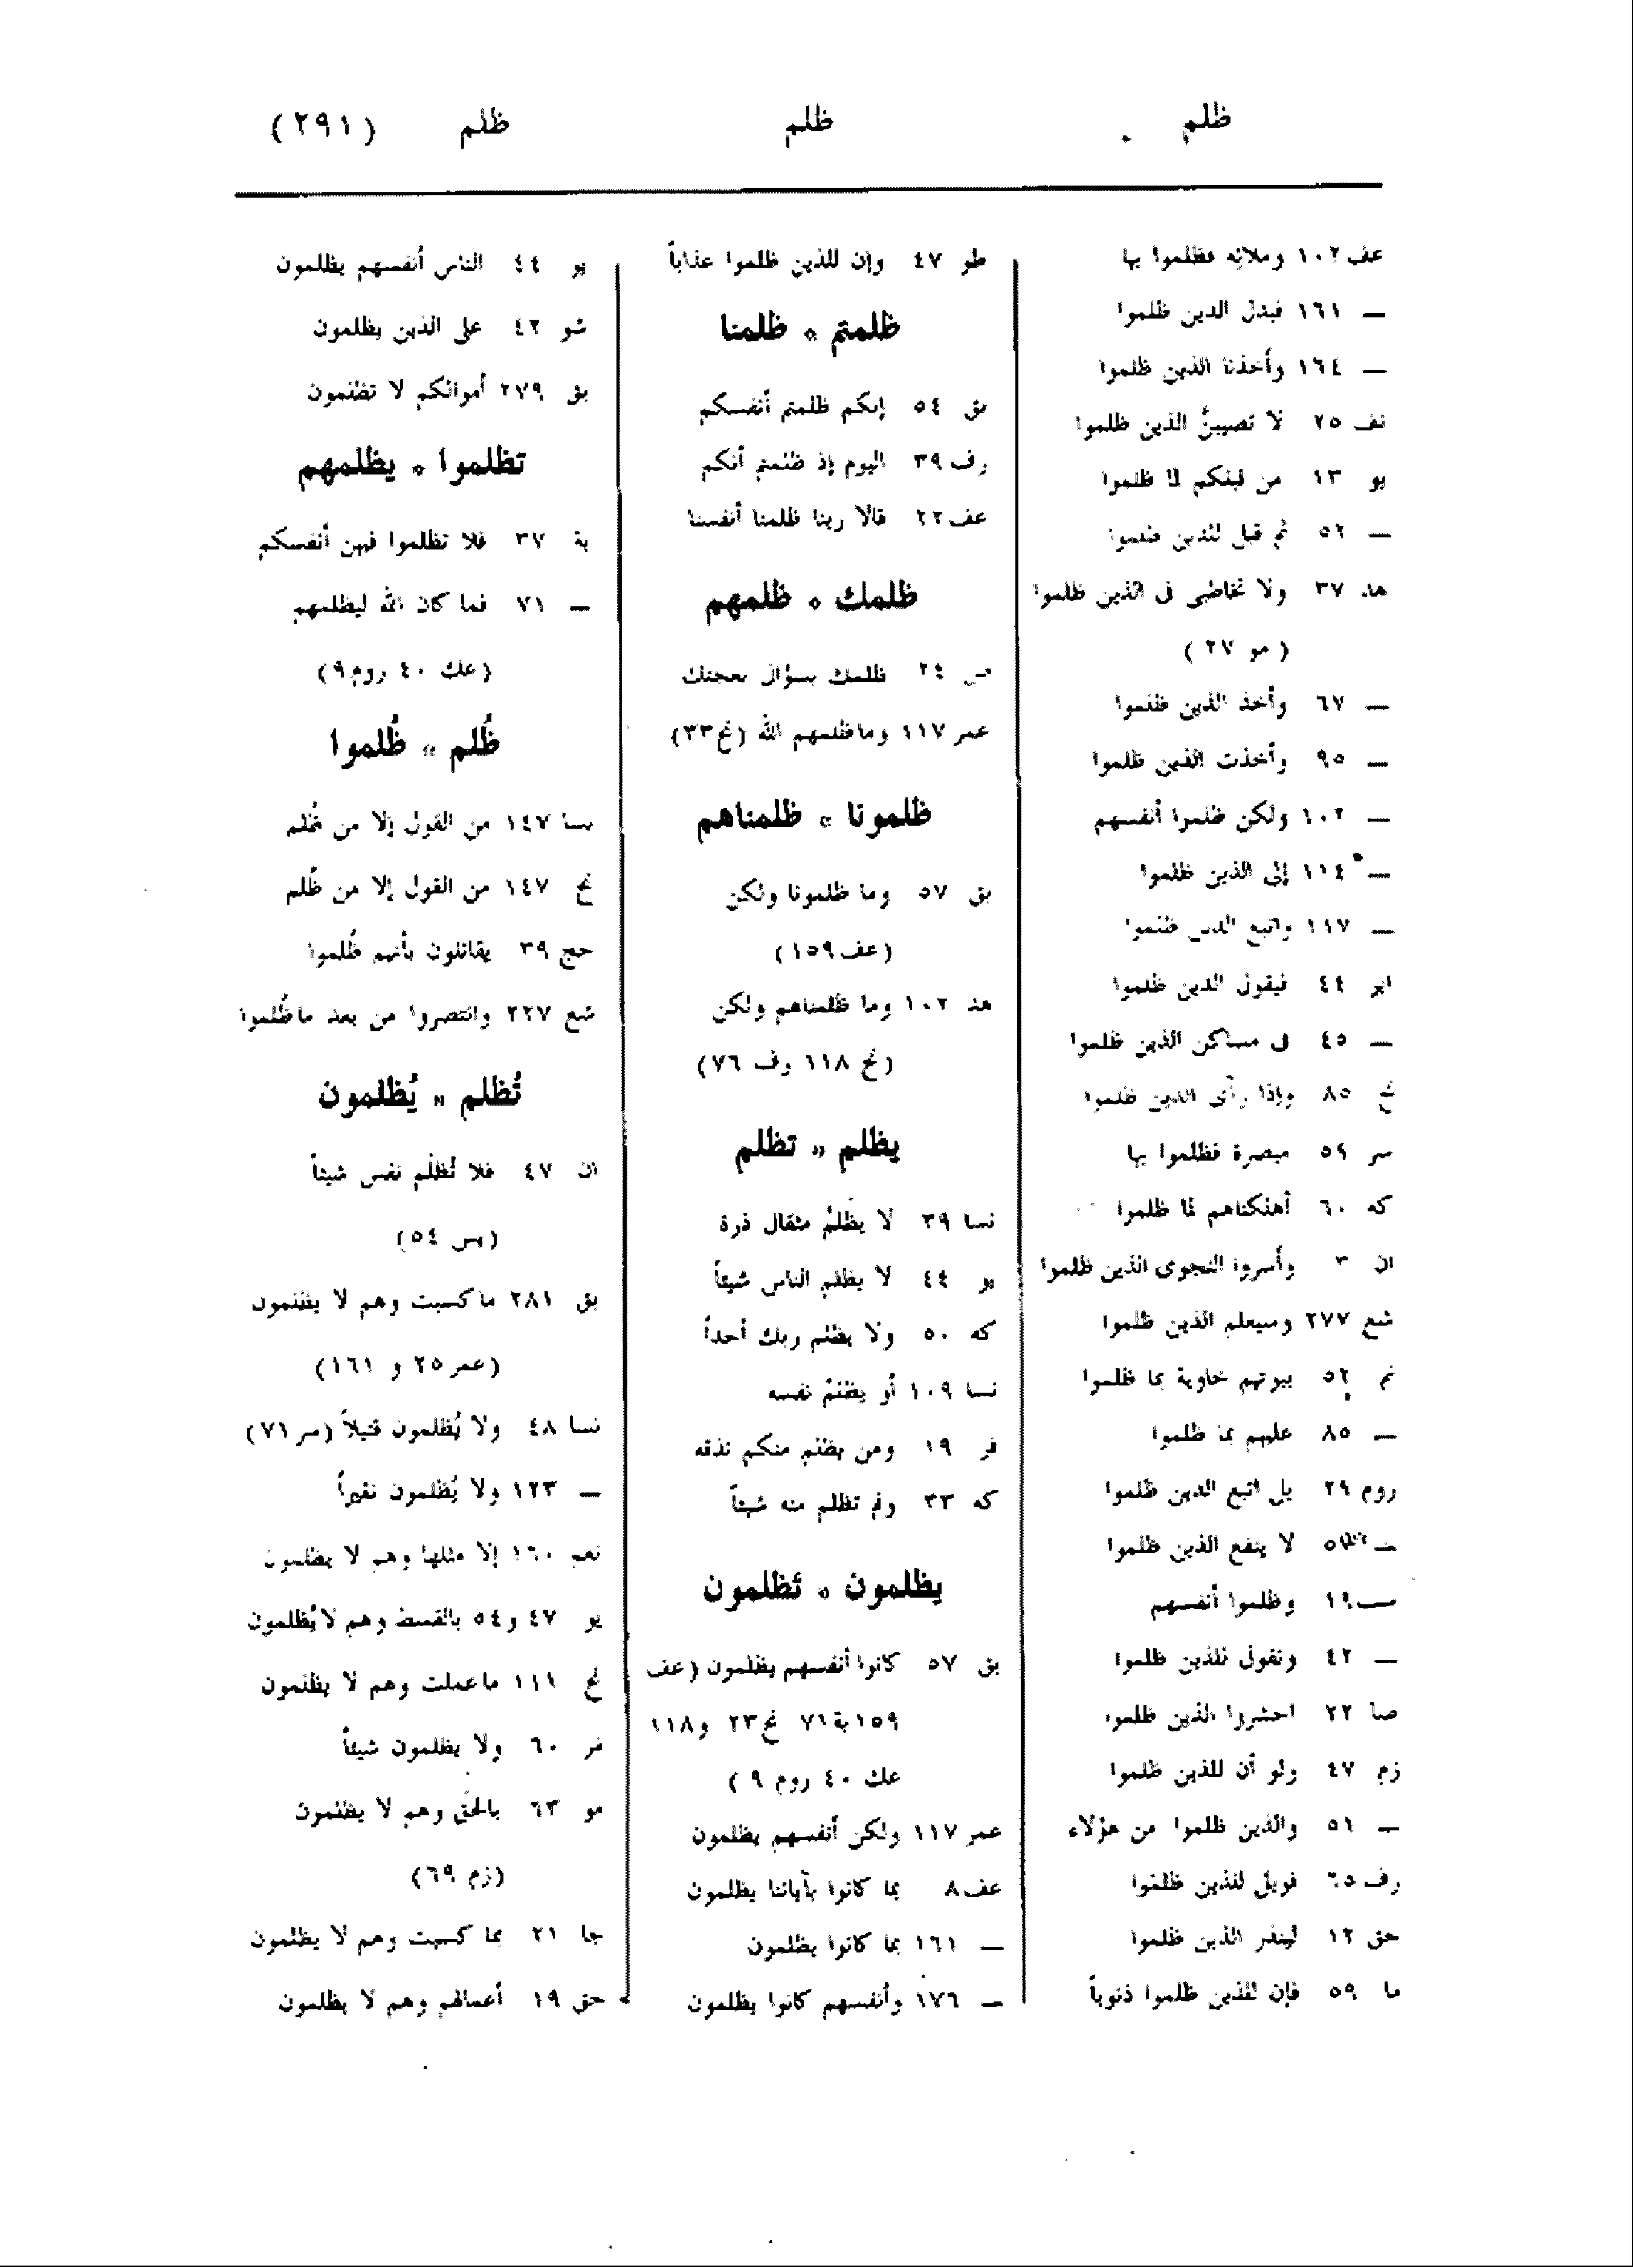 ظلم ظلم ظلم (٢٩١)
عف ١٠٢ وملائه فظلموا بها
— ١٦١ فبدل الذين ظلموا
— ١٦٤ وأخذنا الذين ظلموا
نف ٢٥ لا تصيبنّ الذين ظلموا
يو ١٣ من قبلكم لما ظلموا
— ٥٢ ثم قيل للذين ظلموا
هد ٣٧ ولا تخاطبى فى الذين ظلموا
(مو ٢٧)
— ٦٧ وأخذ الذين ظلموا
— ٩٥ وأخذت الذين ظلموا
— ١٠٢ ولكن ظلموا أنفسهم
— ١١٤ إلى الذين ظلموا
— ١١٧ واتبع الذين ظلموا
ابر ٤٤ فيقول الذين ظلموا
— ٤٥ فى مساكن الذين ظلموا
نح ٨٥ وإذا رأى الذين ظلموا
سر ٥٩ مبصرة فظلموا بها
كه ٦٠ أهلكناهم لما ظلموا
ان ٣ وأسروا النجوى الذين ظلموا
شع ٢٧٧ وسيعلم الذين ظلموا
نم ٥٢ بيوتهم خاوية بما ظلموا
— ٨٥ عليهم بما ظلموا
روم ٢٩ بل اتبع الذين ظلموا
لا ينفع الذين ظلموا
١٩ وظلموا أنفسهم
— ٤٢ ونقول للذين ظلموا
صا ٢٢ احشروا الذين ظلموا
زم ٤٧ ولو أن للذين ظلموا
— ٥١ والذين ظلموا من هؤلاء
رف ٦٥ فويل للذين ظلموا
حق ١٢ لينذر الذين ظلموا
ما ٥٩ فإن للذين ظلموا ذنوباً
طو ٤٧ وإن للذين ظلموا عذاباً
ظلمتم * ظلمنا
بق ٥٤ إنكم ظلمتم أنفسكم
رف ٣٩ اليوم إذ ظلمتم أنكم
عف ٢٢ قالا ربنا ظلمنا أنفسنا
ظلمك * ظلمهم
ص ٢٤ ظلمك بسؤال نعجتك
عمر ١١٧ وما ظلمهم الله (نح ٣٣)
ظلمونا * ظلمناهم
بق ٥٧ وما ظلمونا ولكن
(عف ١٥٩)
هد ١٠٢ وما ظلمناهم ولكن
(نح ١١٨ رف ٧٦)
يظلم * تظلم
نسا ٣٩ لا يظلمُ مثقال ذرة
يو ٤٤ لا يظلم الناس شيئاً
كه ٥٠ ولا يظلم ربك أحداً
نسا ١٠٩ أو يظلمْ نفسه
فر ١٩ ومن يظلم منكم نذقه
كه ٣٣ ولم تظلم منه شيئاً
يظلمون * تظلمون
بق ٥٧ كانوا أنفسهم يظلمون (عف
١٥٩ بة ٧١ نح ٢٣ و ١١٨
عك ٤٠ روم ٩)
عمر ١١٧ ولكن أنفسهم يظلمون
عف ٨ بما كانوا بآياتنا يظلمون
— ١٦١ بما كانوا يظلمون
— ١٧٦ وأنفسهم كانوا يظلمون
يو ٤٤ الناس أنفسهم يظلمون
شو ٤٢ على الذين يظلمون
بق ٢٧٩ أموالكم لا تظلمون
تظلموا * يظلمهم
بة ٣٧ فلا تظلموا فيهن أنفسكم
— ٧١ فما كان الله ليظلمهم
(عك ٤٠ روم ٩)
ظُلم * ظُلموا
نسا ١٤٧ من القول إلا من ظُلم
نح ١٤٧ من القول إلا من ظُلم
حج ٣٩ يقاتلون بأنهم ظُلموا
شع ٢٢٧ وانتصروا من بعد ما ظُلموا
تُظلم * يُظلمون
ان ٤٧ فلا تُظلَم نفس شيئاً
(يس ٥٤)
بق ٢٨١ ما كسبت وهم لا يظلمون
(عمر ٢٥ و ١٦١)
نسا ٤٨ ولا يُظلمون فتيلاً (سر ٧١)
— ١٢٣ ولا يُظلمون نقيراً
نعم ١٦٠ إلا مثلها وهم لا يظلمون
يو ٤٧ و ٥٤ بالقسط وهم لا يُظلمون
نح ١١١ ما عملت وهم لا يظلمون
مر ٦٠ ولا يظلمون شيئاً
مو ٦٣ بالحق وهم لا يظلمون
(زم ٦٩)
جا ٢١ بما كسبت وهم لا يظلمون
حق ١٩ أعمالهم وهم لا يظلمون